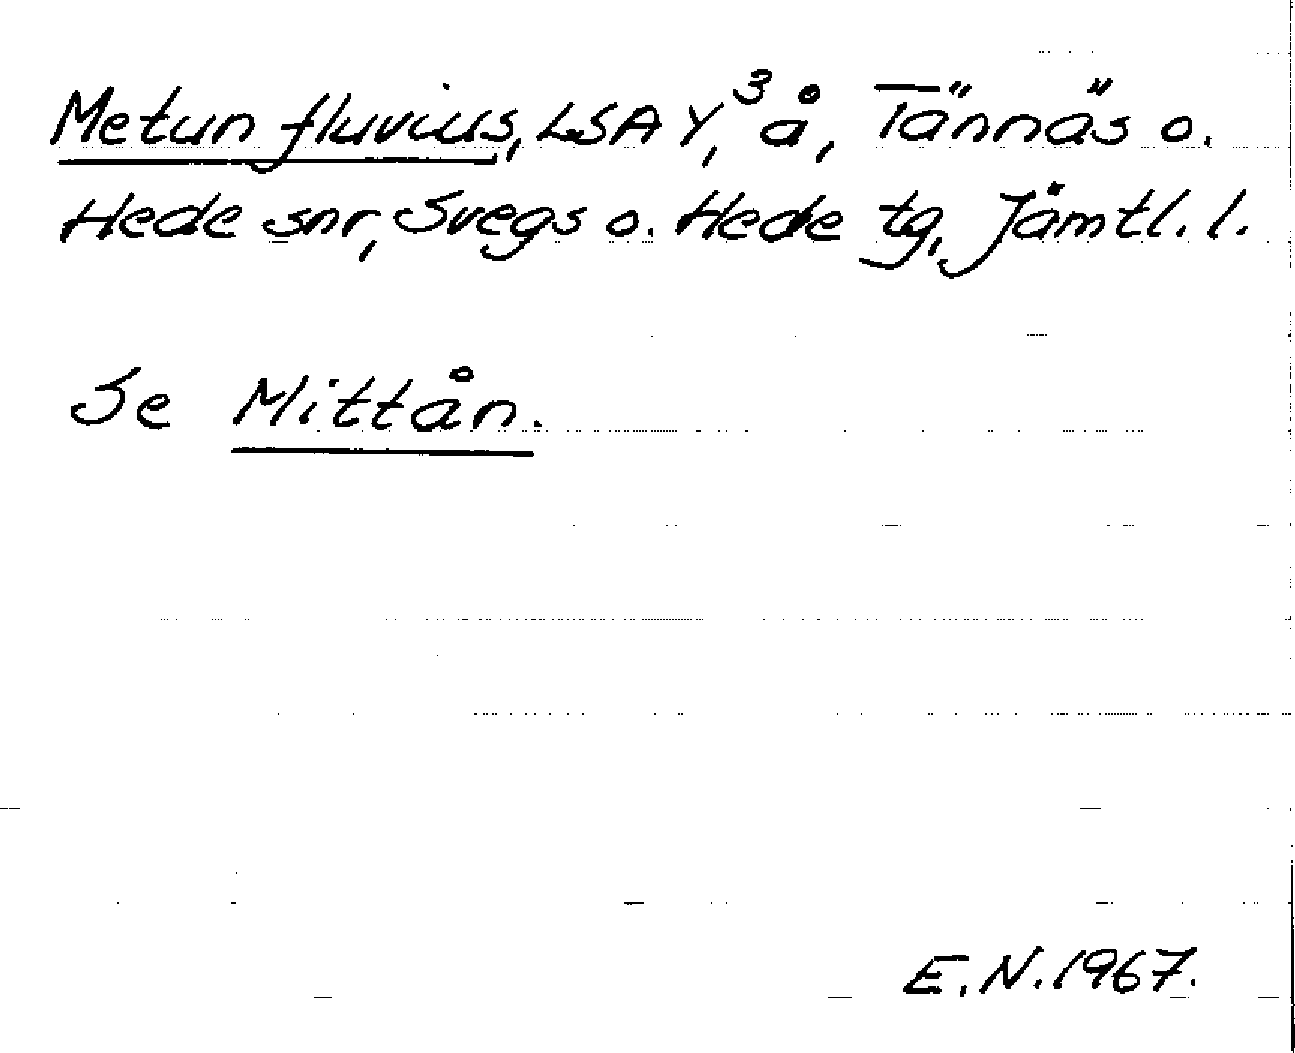 Metun fluvius, LSA Y,³ å, Tännäs o.
Hede snr, Svegs o. Hede tg, Jämtl. l.
Se Mittån.
E.N. 1967.